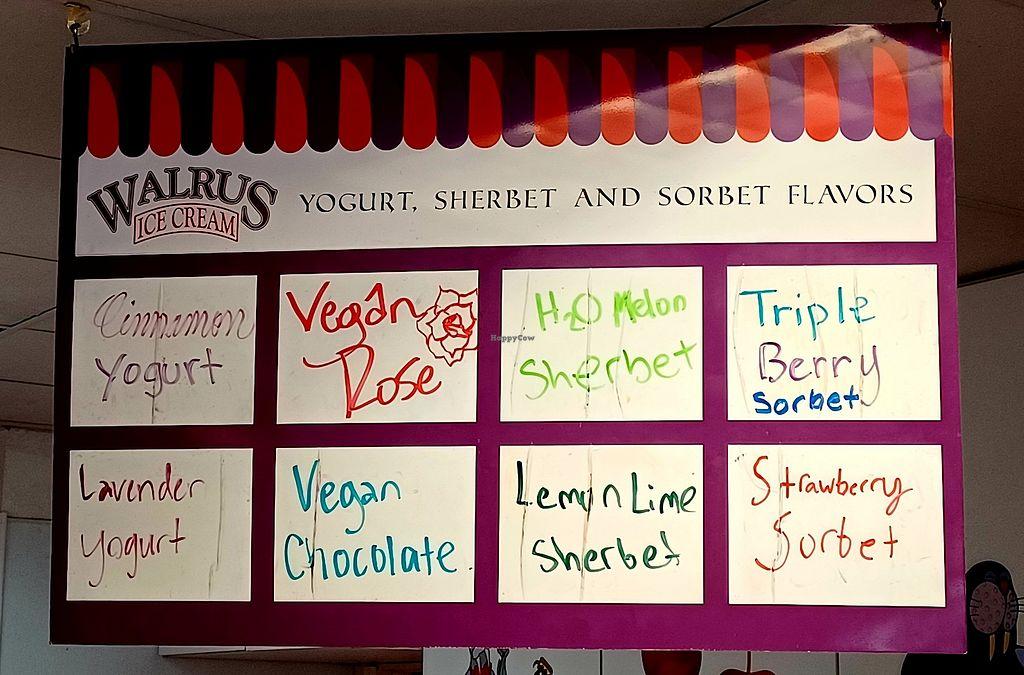 WALRUS
ICE CREAM
YOGURT, SHERBET AND SORBET FLAVORS
Cinnamon
Yogurt
Vegan
Rose
H2O Melon
Sherbet
Triple
Berry
Sorbet
Lavender
Yogurt
Vegan
Chocolate
Lemon Lime
Sherbet
Strawberry
Sorbet
HappyCow